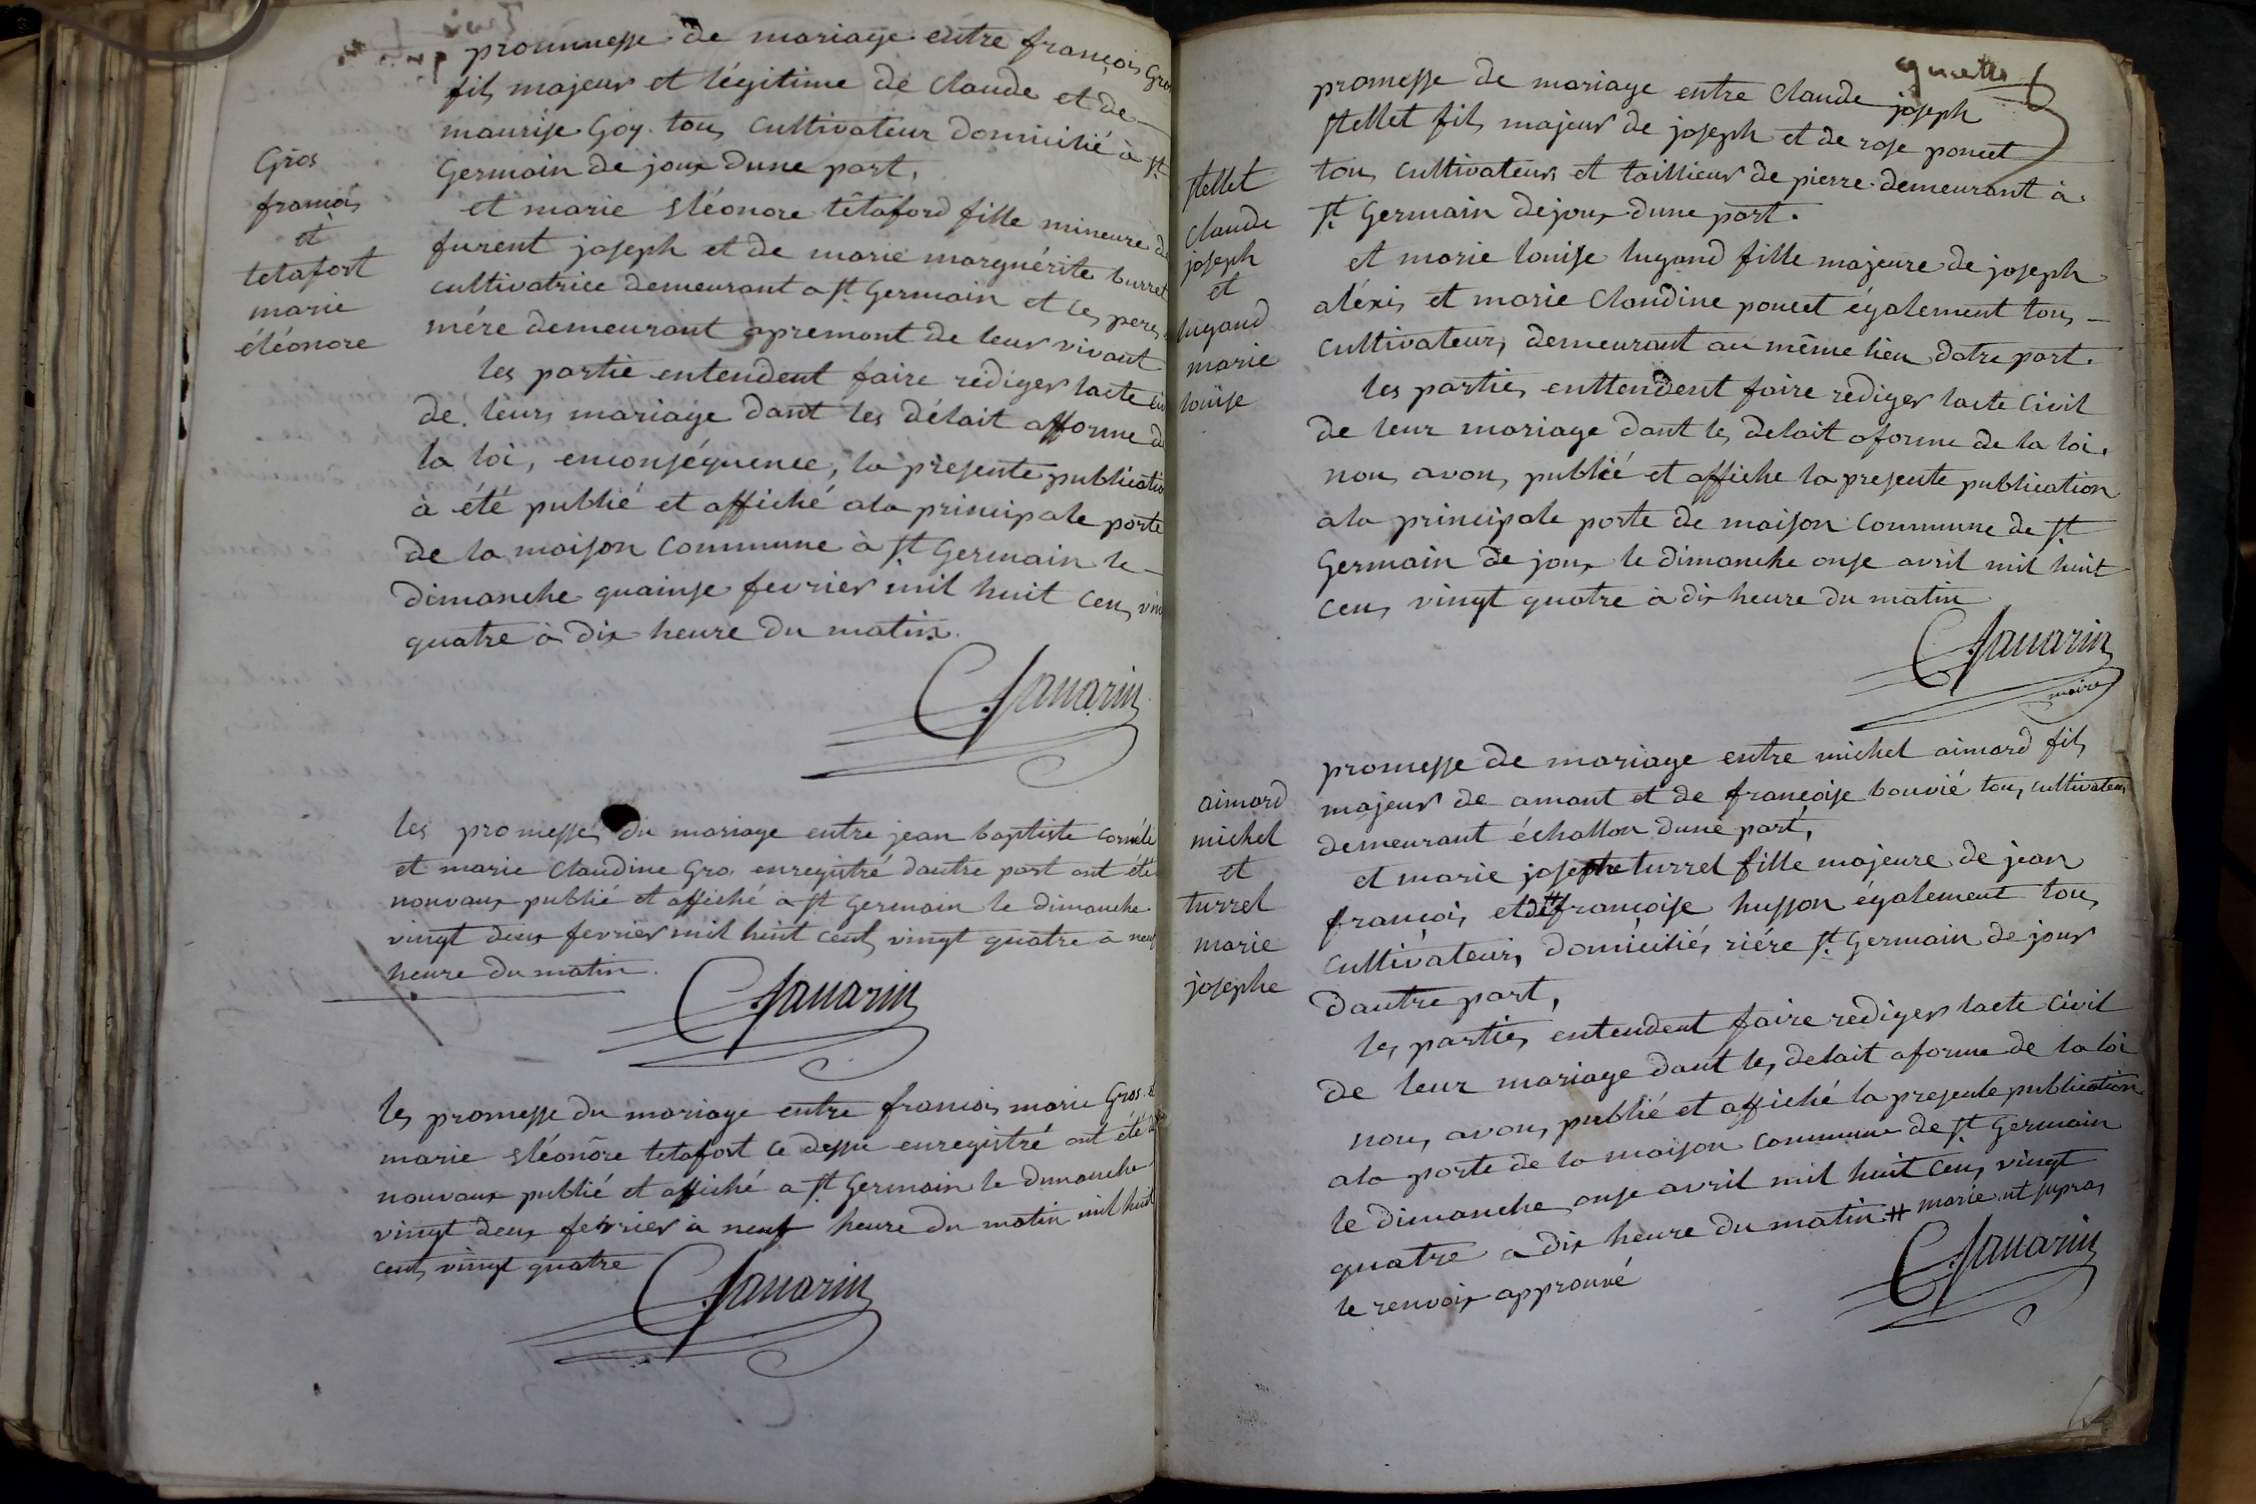 Gros
francois
et
tetafort
marie
éléonore
promnesse de mariage entre francois Gro
fils majeur et légitime de Claude et de
maurise Goy. tous cultivateur domicilié à St
Germain de joux dune part,
et marie éléonore tétaford fille mineure de
furent joseph et de marie marguérite burret
cultivatrice demeurant a St Germain et ces peres
mére demeurant apremont de leur vivant
les partie entendent faire rediger lacte civ
de leurs mariage dant les délait afforme d
la loi, enconséquence, la presente publicatio
à été publié et affiché ala principale porte
de la maison commune à St Germain le
dimanche quainse fevrier mil huit cens vin
quatre à dix heure du matin.
C. Savarin
les promesses du mariage entre jean baptiste cornéle
et marie Claudine Gros enregistré dautre part ont été
nouvaux publié et affiché à St Germain le dimanche
vingt deux fevrier mil huit cents vingt quatre a neuf
heure du matin.
C. Savarin
les promesse du mariage entre francois marie Gros
marie éléonore tetafort ce dessu enregistré ont été
nouvaux publié et affiché a St Germain le dimanche
vingt deux fevrier à neuf heure du matin mil huit
cents vingt quatre
C. Savarin
Stellet
claude
joseph
et
lugand
marie
louise
promesse de mariage entre Claude joseph
Stellet fils majeur de joseph et de rose poncet
tous cultivateurs et taillieur de pierre demeurant à
St Germain dejoux dune part.
et marie louise lugand fille majeure de joseph
aléxis et marie Claudine poncet également tous
cultivateurs demeurant au même lieu datre part.
les parties enttendent faire rediger lacte civil
de leur mariage dant les delait aforme de la loi.
nous avons publié et affiche la presente publication
ala principale porte de maison commune de St
Germain de joux le dimanche onse avril mil huit
cens vingt quatre à dix heure du matin
C. Savarin
maire
aimard
michel
et
turrel
marie
josephe
promesse de mariage entre michel aimard fils
majeur de amant et de françoise bouvié tous cultivateurs
demeurant échallon dune part,
et marie josephe turrel fille majeure de jean
françois et de # francoise husson également tous
cultivateurs domiciliés riére St Germain de joux
dautre part,
les parties entendent faire rediger lacte civil
de leur mariage dant les delait aforme de la loi
nous avons publié et affiché la presente publication
ala porte de la maison commune de St Germain
le dimanche onse avril mil huit cens vingt
quatre a dix heure du matin # marie ut supra
le renvoix approuvé
C. Savarin